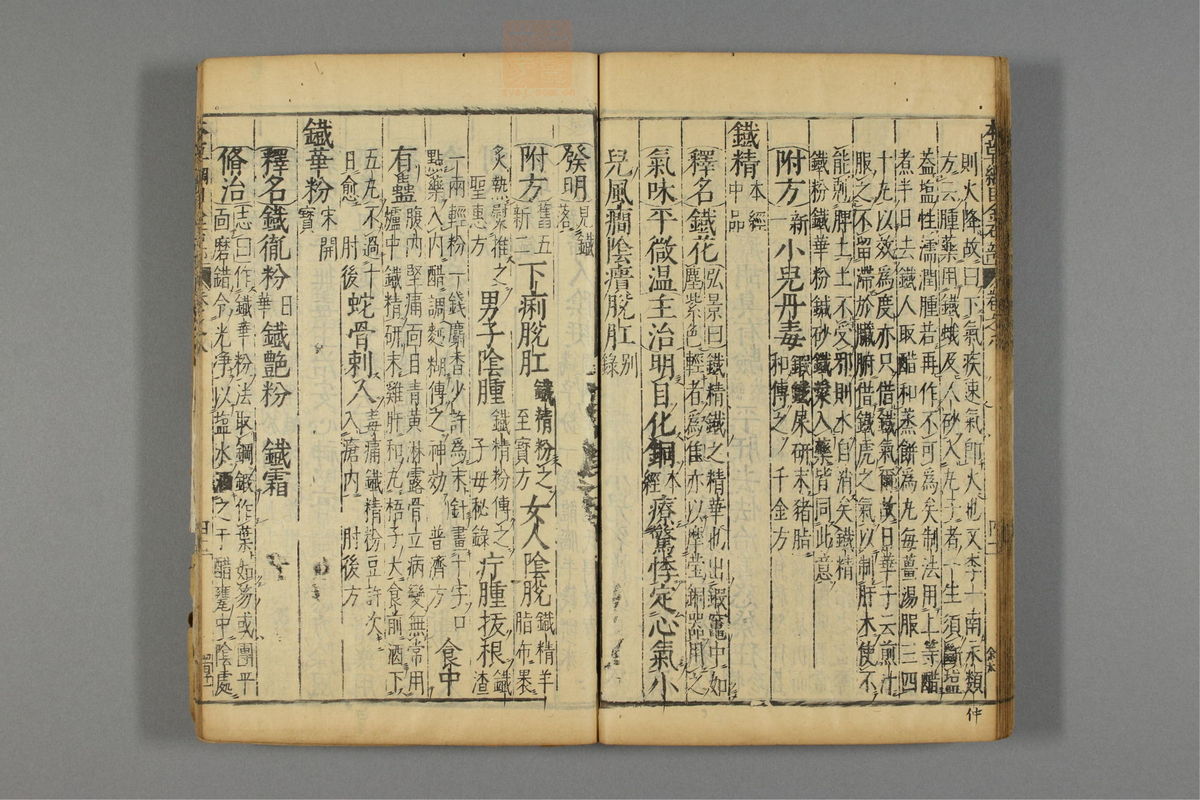 則火降故曰下氣疾速氣即火也又李一南永類
方云腫藥用鐵蛾及人砂入丸子者一生須斷塩
蓋塩性濡潤腫若再作不可爲矣制法用上等醋
煮半日去鐵人取醋和蒸餅爲丸每薑湯服三四
十丸以效爲度亦只借鐵氣爾故日華子云煎汁
服之不留滯於臟腑借鐵虎之氣以制肝木使不
能剋脾土土不受邪則水自消矣鐵精
鐵粉鐵華粉鍼砂鐵漿入藥皆同此意
附方新一小兒丹毒煆鐵屎研末豬脂和傅之千金方
鐵精本經中品
釋名鐵花弘景曰鐵精鐵之精華也出煆竈中如塵紫色輕者爲佳亦以摩瑩銅器用之
氣味平微温主治明目化銅本經療驚悸定心氣小
兒風癎陰㿉脱肛别錄
發明見鐵落
附方舊五新二下痢脱肛鐵精粉之至寶方女人陰脱鐵精羊脂布裹
炙熱熨推之聖惠方男子陰腫鐵精粉傅之子母秘錄疔腫拔根鐵渣
一兩輕粉一錢麝香少許爲末針畫十字口
點藥入内醋調麪糊傅之神効普濟方食中
有蠱腹内堅痛面目青黃淋露骨立病變無常用爐中鐵精研末雞肝和丸梧子大食前酒下
五丸不過十日愈肘後蛇骨刺入毒痛鐵精粉豆許次入瘡内肘後方
鐵華粉宋開寶
釋名鐵胤粉日華鐵艷粉鐵霜
脩治志曰作鐵華粉法取鋼鍛作葉如笏或團平面磨錯令光淨以塩水洒之于醋甕中陰處
仲